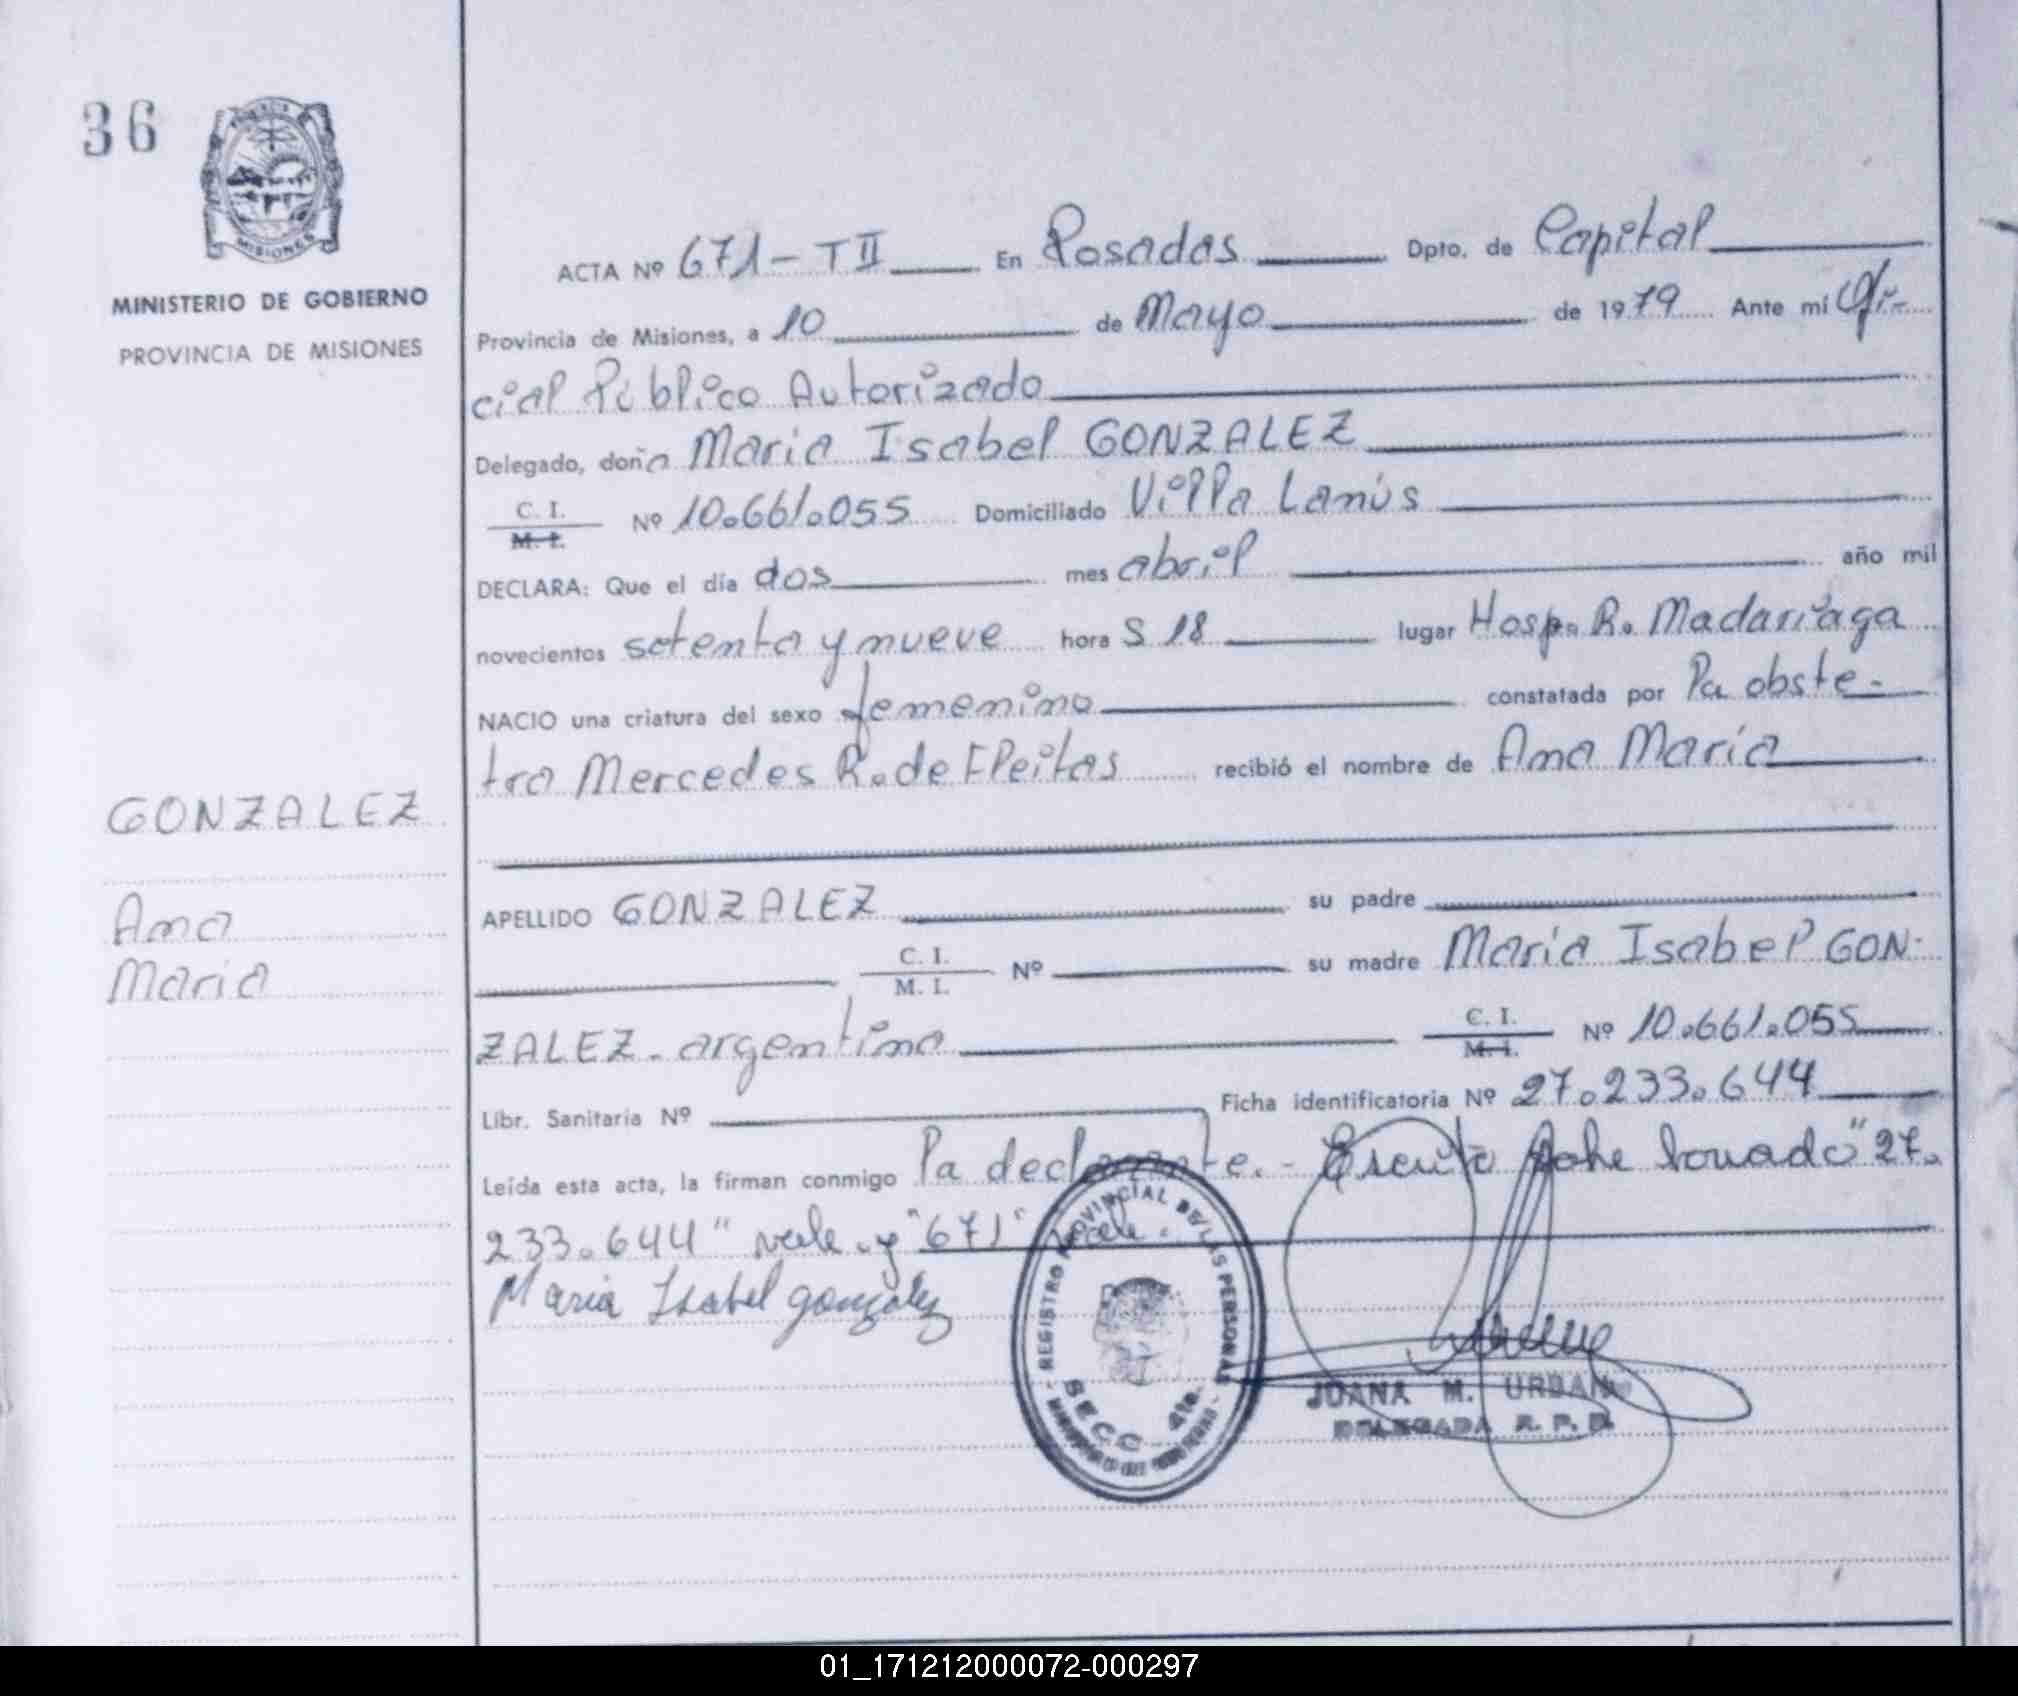 36
MISIONES
MINISTERIO DE GOBIERNO
PROVINCIA DE MISIONES
ACTA Nº 671 - T II En Posadas Dpto. de Capital
Provincia de Misiones, a 10 de Mayo de 1979 Ante mí Ofi-
cial Público Autorizado
Delegado, doña Maria Isabel GONZALEZ
C. I.
M. I.
Nº 10.661.055 Domiciliado Villa Lanús
DECLARA: Que el día dos mes abril año mil
novecientos setenta y nueve hora s 18 lugar Hosp. R. Madariaga
NACIO una criatura del sexo femenino constatada por la obste-
tra Mercedes R. de Fleitas recibió el nombre de Ana María
GONZALEZ
Ana
Maria
APELLIDO GONZALEZ su padre
C. I.
M. I.
Nº su madre Maria Isabel GON-
ZALEZ - argentina
C. I.
M. I.
Nº 10.661.055
Libr. Sanitaria Nº Ficha identificatoria Nº 27.233.644
Leída esta acta, la firman conmigo la declarante. - Escrito sobre borrado "27.
233.644" vale. y "671" vale.
Maria Isabel gonzalez
REGISTRO PROVINCIAL DE LAS PERSONAS
SECC 4ta.
JUANA M. URBAN
DELEGADA R. P. P.
01_171212000072-000297